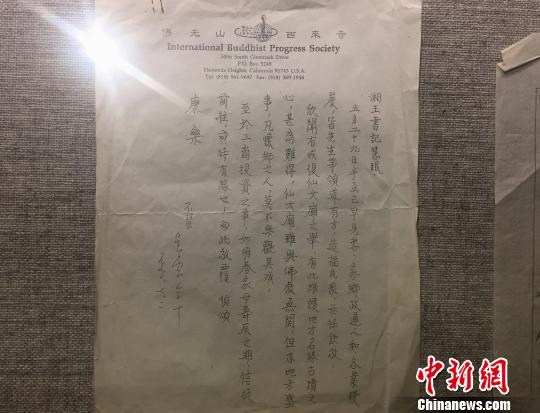 佛光山 西來寺
International Buddhist Progress Society
3456 South Glenmark Drive
P.O. Box 5248
Hacienda Heights, California 91745 U.S.A.
Tel: (818) 961-9697 Fax: (818) 369-1944
湘王書記慧眼：
五月二十九日手函已早見悉，家鄉政通人和，各業猛
展，皆先生等領導有方，造福民衆，無任欽敬。
欣聞有恢復仙女廟之舉，有此維護地方名勝古蹟之
心，甚為難得，仙女廟雖與佛教無關，但亦地方盛
事，凡我鄉之人，莫不樂觀其成，
至於工商投資之事，如明春家母壽辰之期，信徒
前往，或將有緣也，為此敬覆 順頌
康樂
星雲 合十
中新網
Chinanews.com